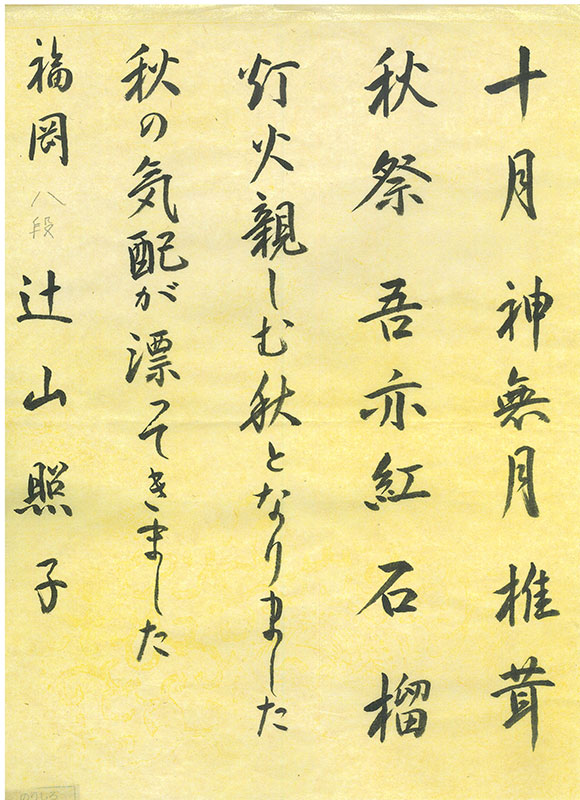 十月 神無月 椎茸
秋祭 吾亦紅 石榴
灯火親しむ秋となりました
秋の気配が漂ってきました
福岡 八段 辻山照子
のりしろ